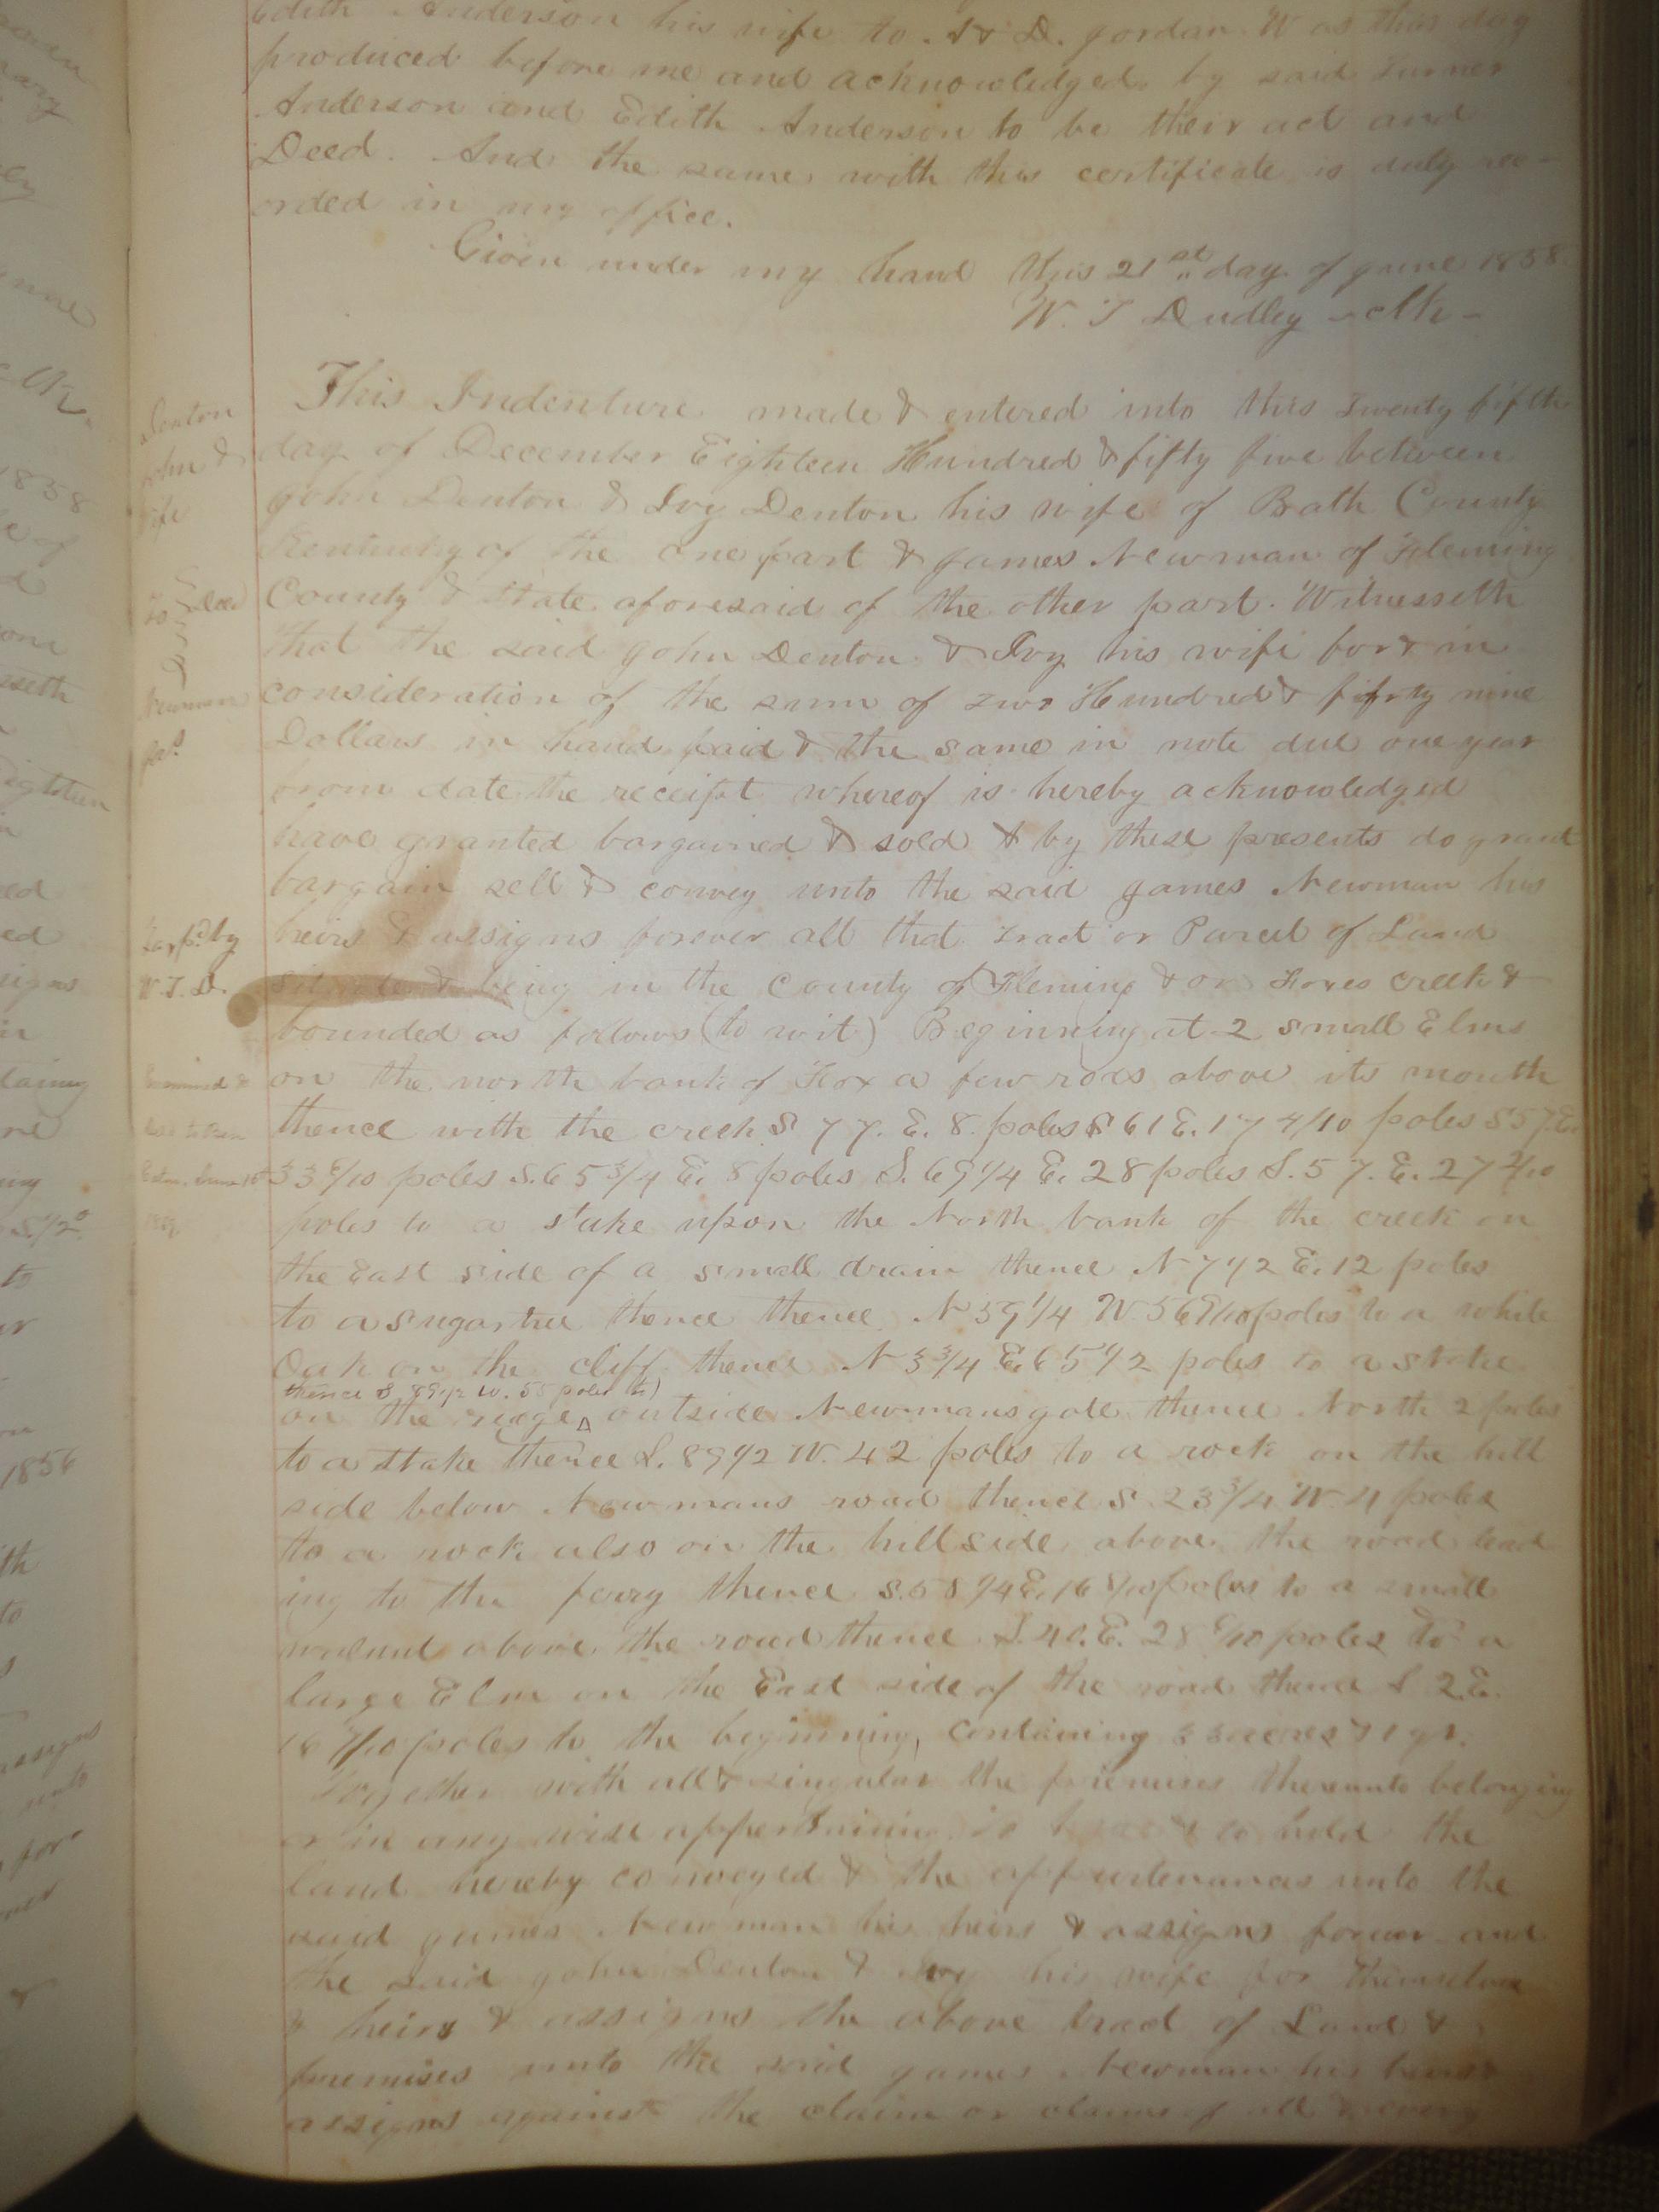 Edith Anderson his wife to J & D. Jordan. Was this day
produced before me and acknowledged by said Turner
Anderson and Edith Anderson to be their act and
Deed. And the same with this certificate is duly rec-
orded in my office.
Given under my hand this 21st day of June 1858.
W. T Dudley clk
Denton
John &
wife
To Deed
Newman
Jas
W. T. D.
This Indenture made & entered into this Twenty fifth
day of December Eighteen Hundred & fifty five between
John Denton & Ivy Denton his wife of Bath County
Kentucky of the one part & James Newman of Fleming
County & State aforesaid of the other part. Witnesseth
that the said John Denton & Ivy his wife for & in
consideration of the sum of Two Hundred & nine
Dollars in hand paid & the same in note due one year
from date the receipt whereof is hereby acknowledged
have granted bargained & sold & by these presents do grant
bargain sell & convey unto the said James Newman his
heirs & assigns forever all that Tract or Parcel of Land
situate & being in the County of Fleming & on Foxes creek &
bounded as follows (to wit) Beginning at 2 small Elms
on the north bank of Fox a few rods above its mouth
thence with the creek S 77. E. 8. poles S 61 E. 17 4/10 poles S 57. E.
33 poles S. 65 3/4 E. 8 poles S. 69 1/4 E. 28 poles S. 57. E. 27
poles to a stake upon the North bank of the creek on
the East side of a small drain thence N 7 1/2 E. 12 poles
to a sugar tree thence thence N 39 1/4 W. 36 poles to a white
Oak on the cliff thence N 3 3/4 E. 65 1/2 poles to a stake
thence S 89 1/2 W. 55 poles to
on the ridge outside Newmans gate thence North 2 poles
to a stake thence S. 89 1/2 W. 42 poles to a rock on the hill
side below Newmans road thence S 23 3/4 W. 4 poles
to a rock also on the hill side above the road lead
ing to the ferry thence S. 58 1/4 E. 16 poles to a small
walnut above the road thence S. 40. E. 28 poles to a
large Elm on the East side of the road thence S 2. E.
16 poles to the beginning, containing 33 acres & 1 qr.
Together with all & singular the premises thereunto belonging
or in any wise appertaining To have & to hold the
land hereby conveyed & the appurtenances unto the
said James Newman his heirs & assigns forever and
the said John Denton & Ivy his wife for themselves
& heirs & assigns the above tract of Land &
premises unto the said James Newman his heirs &
assigns against the claim or claims of all & every